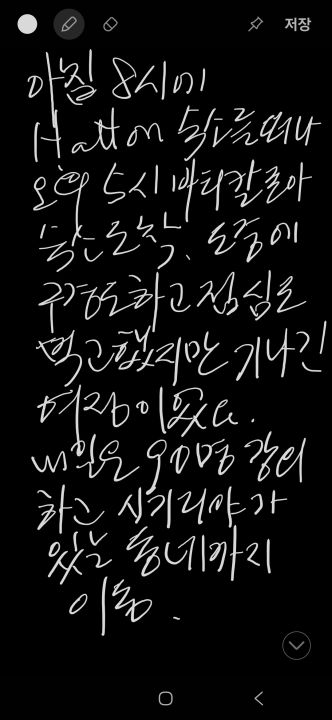 저장
아침 8시에
Hatton 숙소를 떠나
오후 5시 바티칼로아
숙소 도착. 도중에
구경도하고 점심도
먹고했지만 기나긴
여정이었다.
내일은 90명 강의
하고 시기리야가
있는 동네까지
이동.